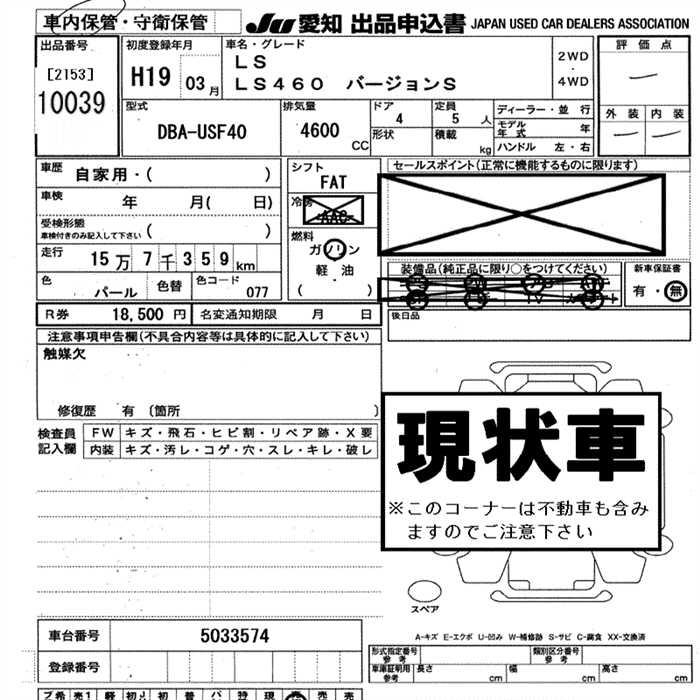 車内保管・守衛保管 JU 愛知 出品申込書 JAPAN USED CAR DEALERS ASSOCIATION
出品番号 初度登録年月 車名・グレード 評価点
[2153] H19 03月 LS 2WD
10039 LS460 バージョンS ・ 4WD
型式 排気量 ドア 定員 ディーラー・並 行 外装 内装
DBA-USF40 4600 CC 4 5 人 モデル年式 年
形状 積載 kg ハンドル 左・右
車歴 自家用・( ) シフト セールスポイント(正常に機能するものに限ります)
FAT
車検 年 月( 日) 冷房
AAC
受検形態 燃料
車検付きのみ記入して下さい ( ) ガソリン
走行 15万7千359km 軽・油 装備品(純正品に限り○をつけてください) 新車保証書
色 パール 色替 色コード 077 ( ) TV 有・無
R券 18,500円 名変通知期限 月 日 後日品
注意事項申告欄(不具合内容等は具体的に記入して下さい)
触媒欠
修復歴 有 (箇所 )
現状車
※このコーナーは不動車も含み
ますのでご注意下さい
検査員 FW キズ・飛石・ヒビ割・リペア跡・X要
記入欄 内装 キズ・汚レ・コゲ・穴・スレ・キレ・破レ
スペア
A-キズ E-エクボ U-凹み W-補修跡 S-サビ C-腐食 XX-交換済
車台番号 5033574
形式指定番号 参考 類別区分番号 参考
登録番号 車庫証明用 参考 長さ cm 幅 cm 高さ cm